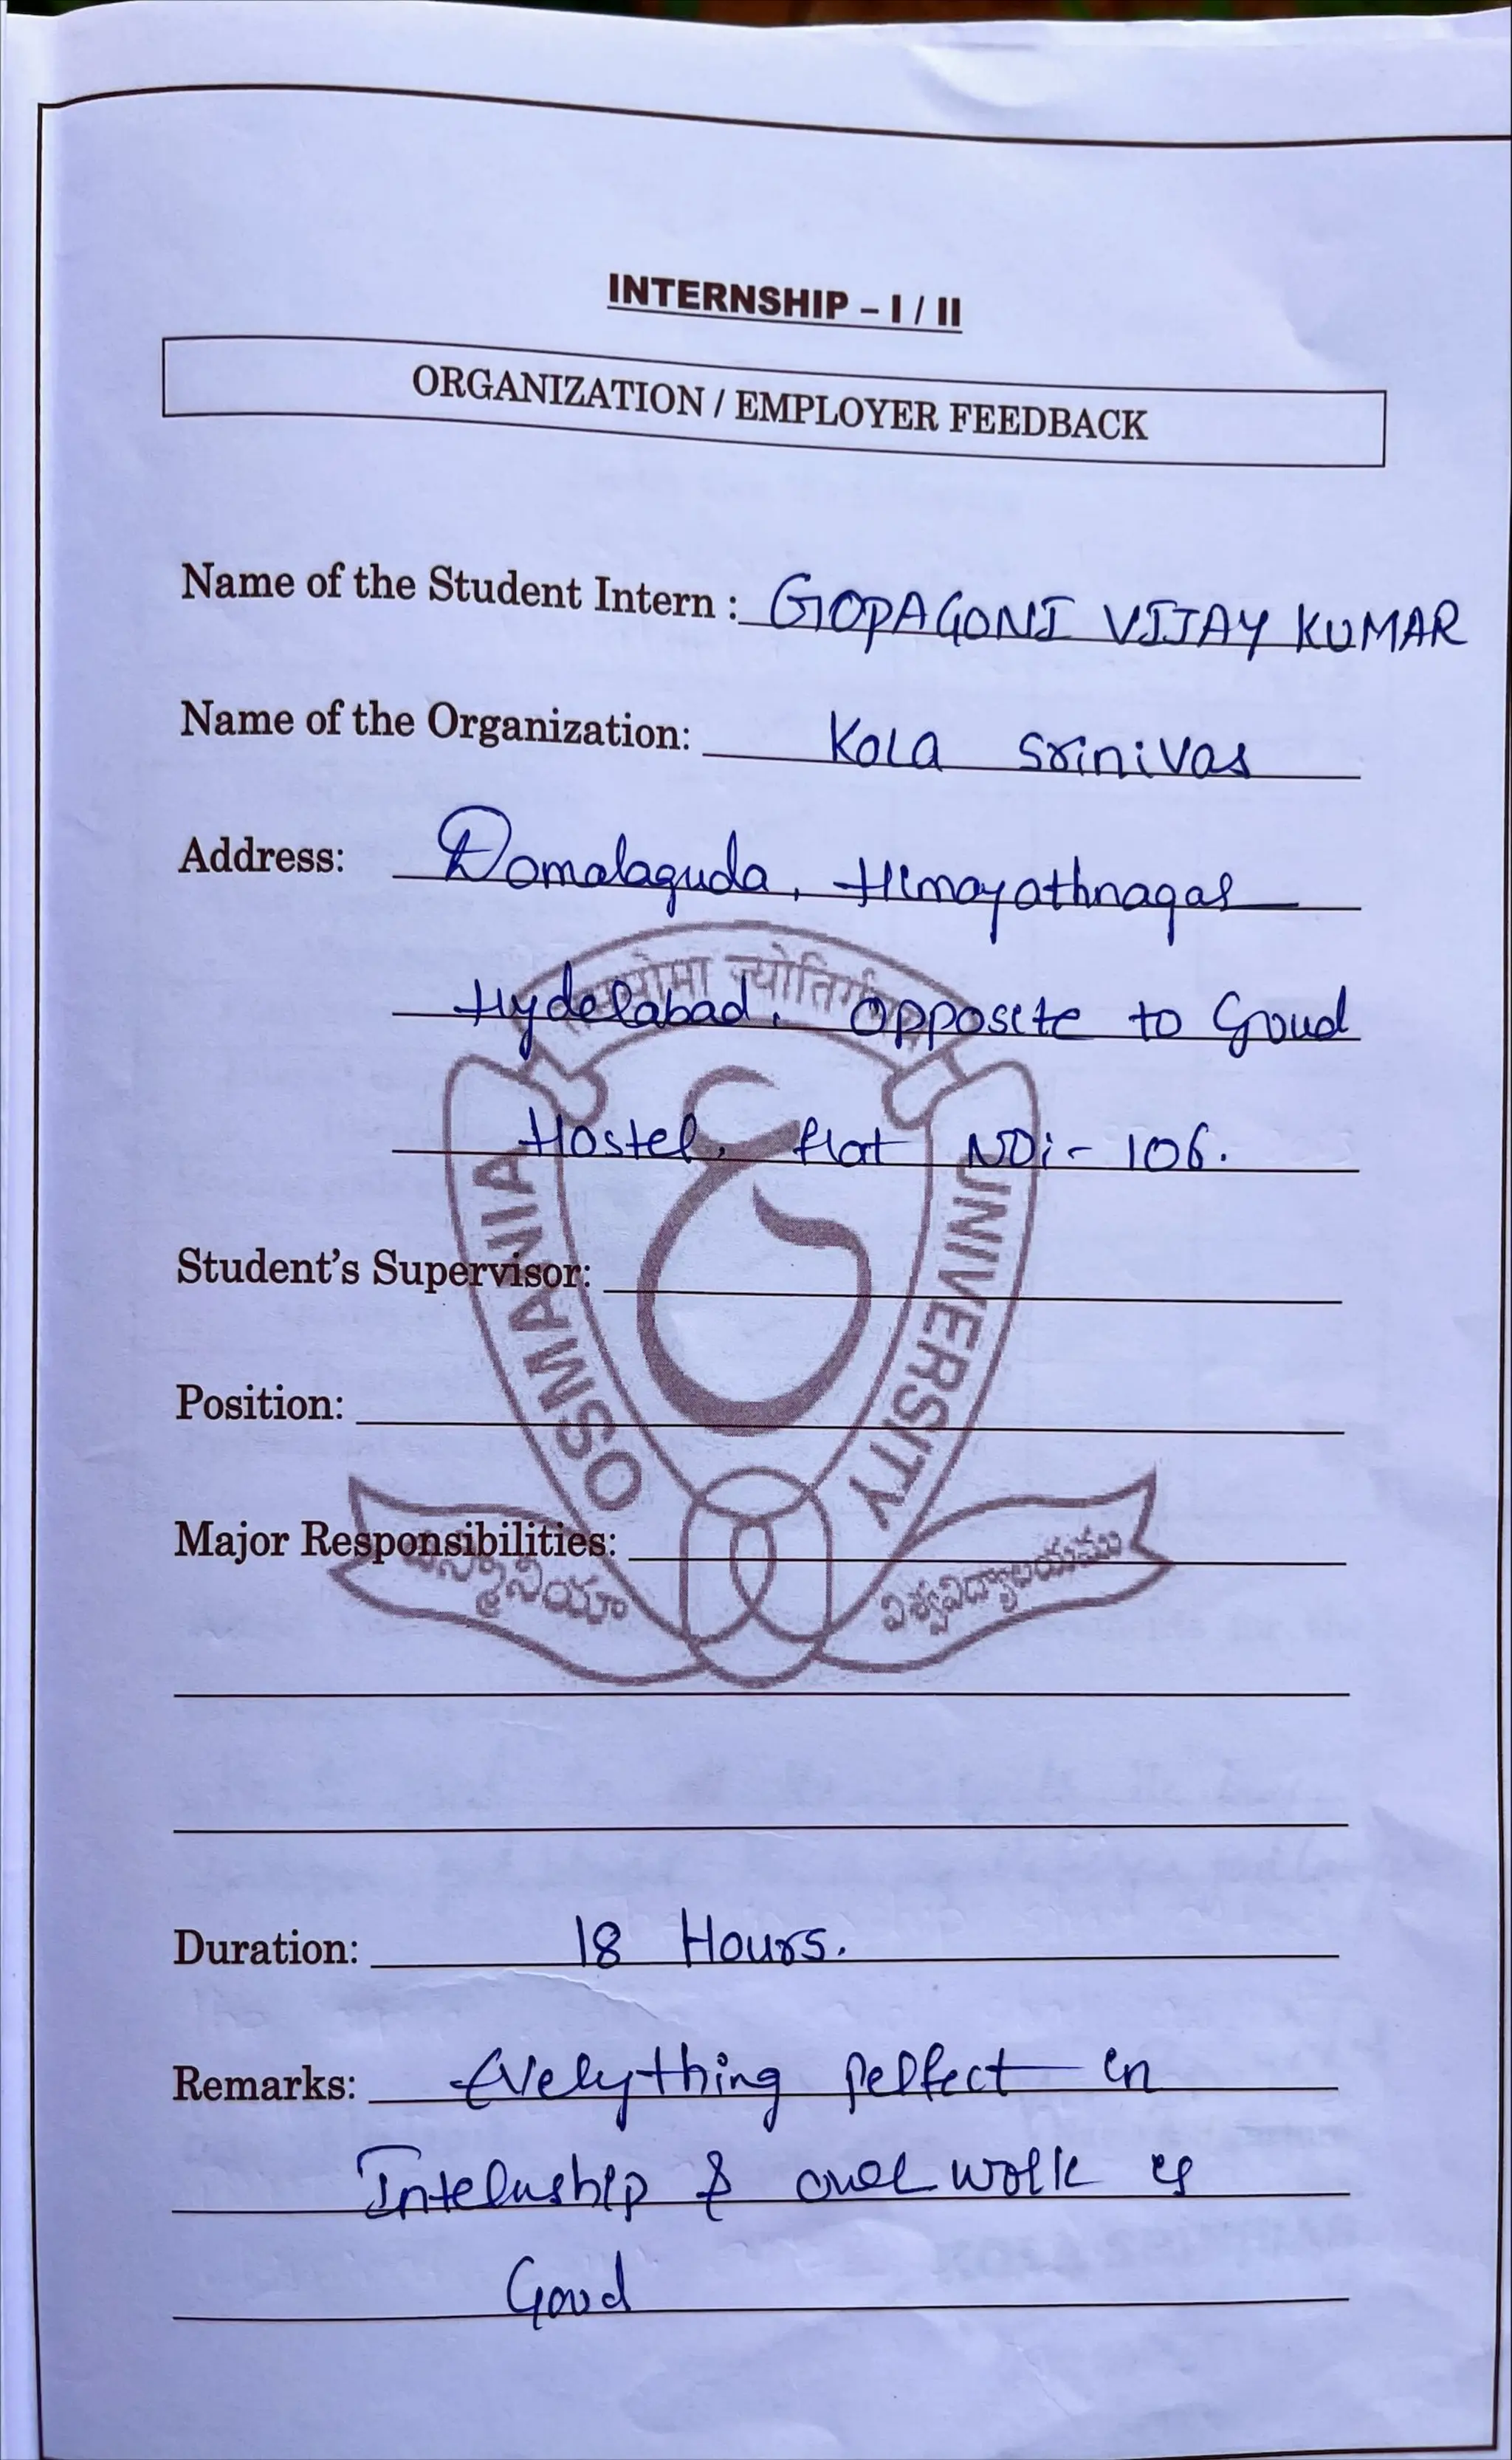 INTERNSHIP – I / II
ORGANIZATION / EMPLOYER FEEDBACK
Name of the Student Intern : GOPAGONI VIJAY KUMAR
Name of the Organization: Kola Srinivas
Address: Domalaguda, Himayathnagar
Hyderabad. Opposite to Goud
Hostel, flat NO:- 106.
Student's Supervisor:
Position:
Major Responsibilities:
Duration: 18 Hours.
Remarks: Everything perfect in
Internship & over work is
Good
OSMANIA UNIVERSITY
ఉస్మానియా విశ్వవిద్యాలయము